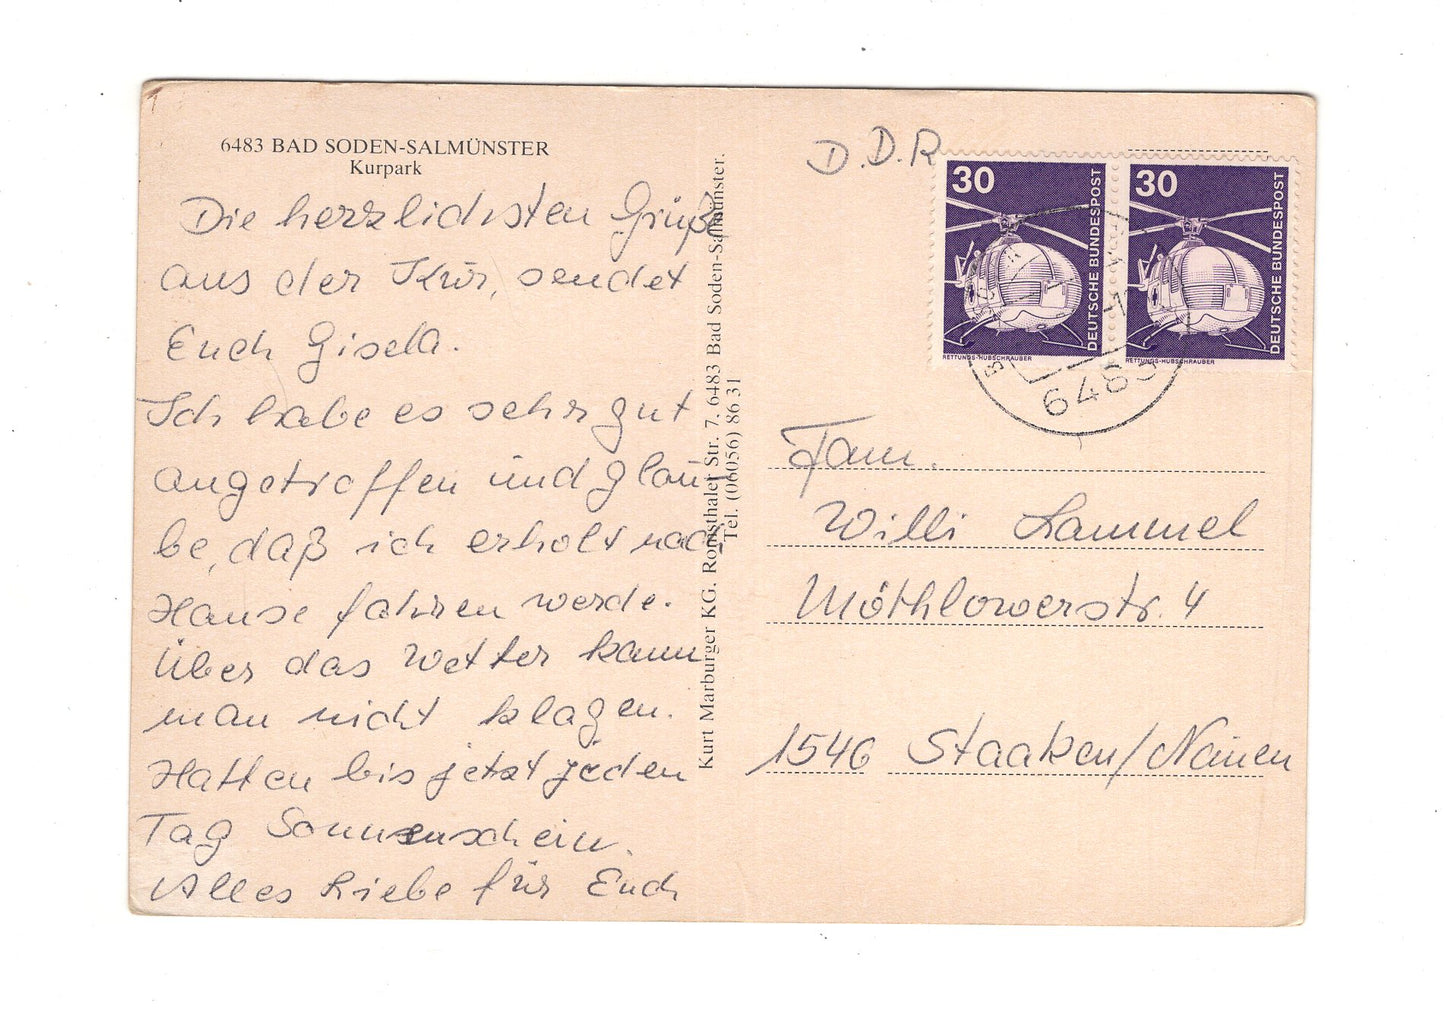 6483 BAD SODEN-SALMÜNSTER
Kurpark
Die herzlichsten Grüße
aus der Kur, sendet
Euch Gisela.
Ich habe es sehr gut
angetroffen und glau
be, daß ich erholt nach
Hause fahren werde.
Über das Wetter kann
man nicht klagen.
Hatten bis jetzt jeden
Tag Sonnenschein.
Alles Liebe für Euch
Kurt Marburger KG. Romsthaler Str. 7. 6483 Bad Soden-Salmünster.
Tel. (06056) 86 31
D.D.R
30
DEUTSCHE BUNDESPOST
RETTUNGS-HUBSCHRAUBER
30
DEUTSCHE BUNDESPOST
RETTUNGS-HUBSCHRAUBER
6483
Fam.
Willi Lammel
Möthlowerstr. 4
1546 Staaken/Nauen